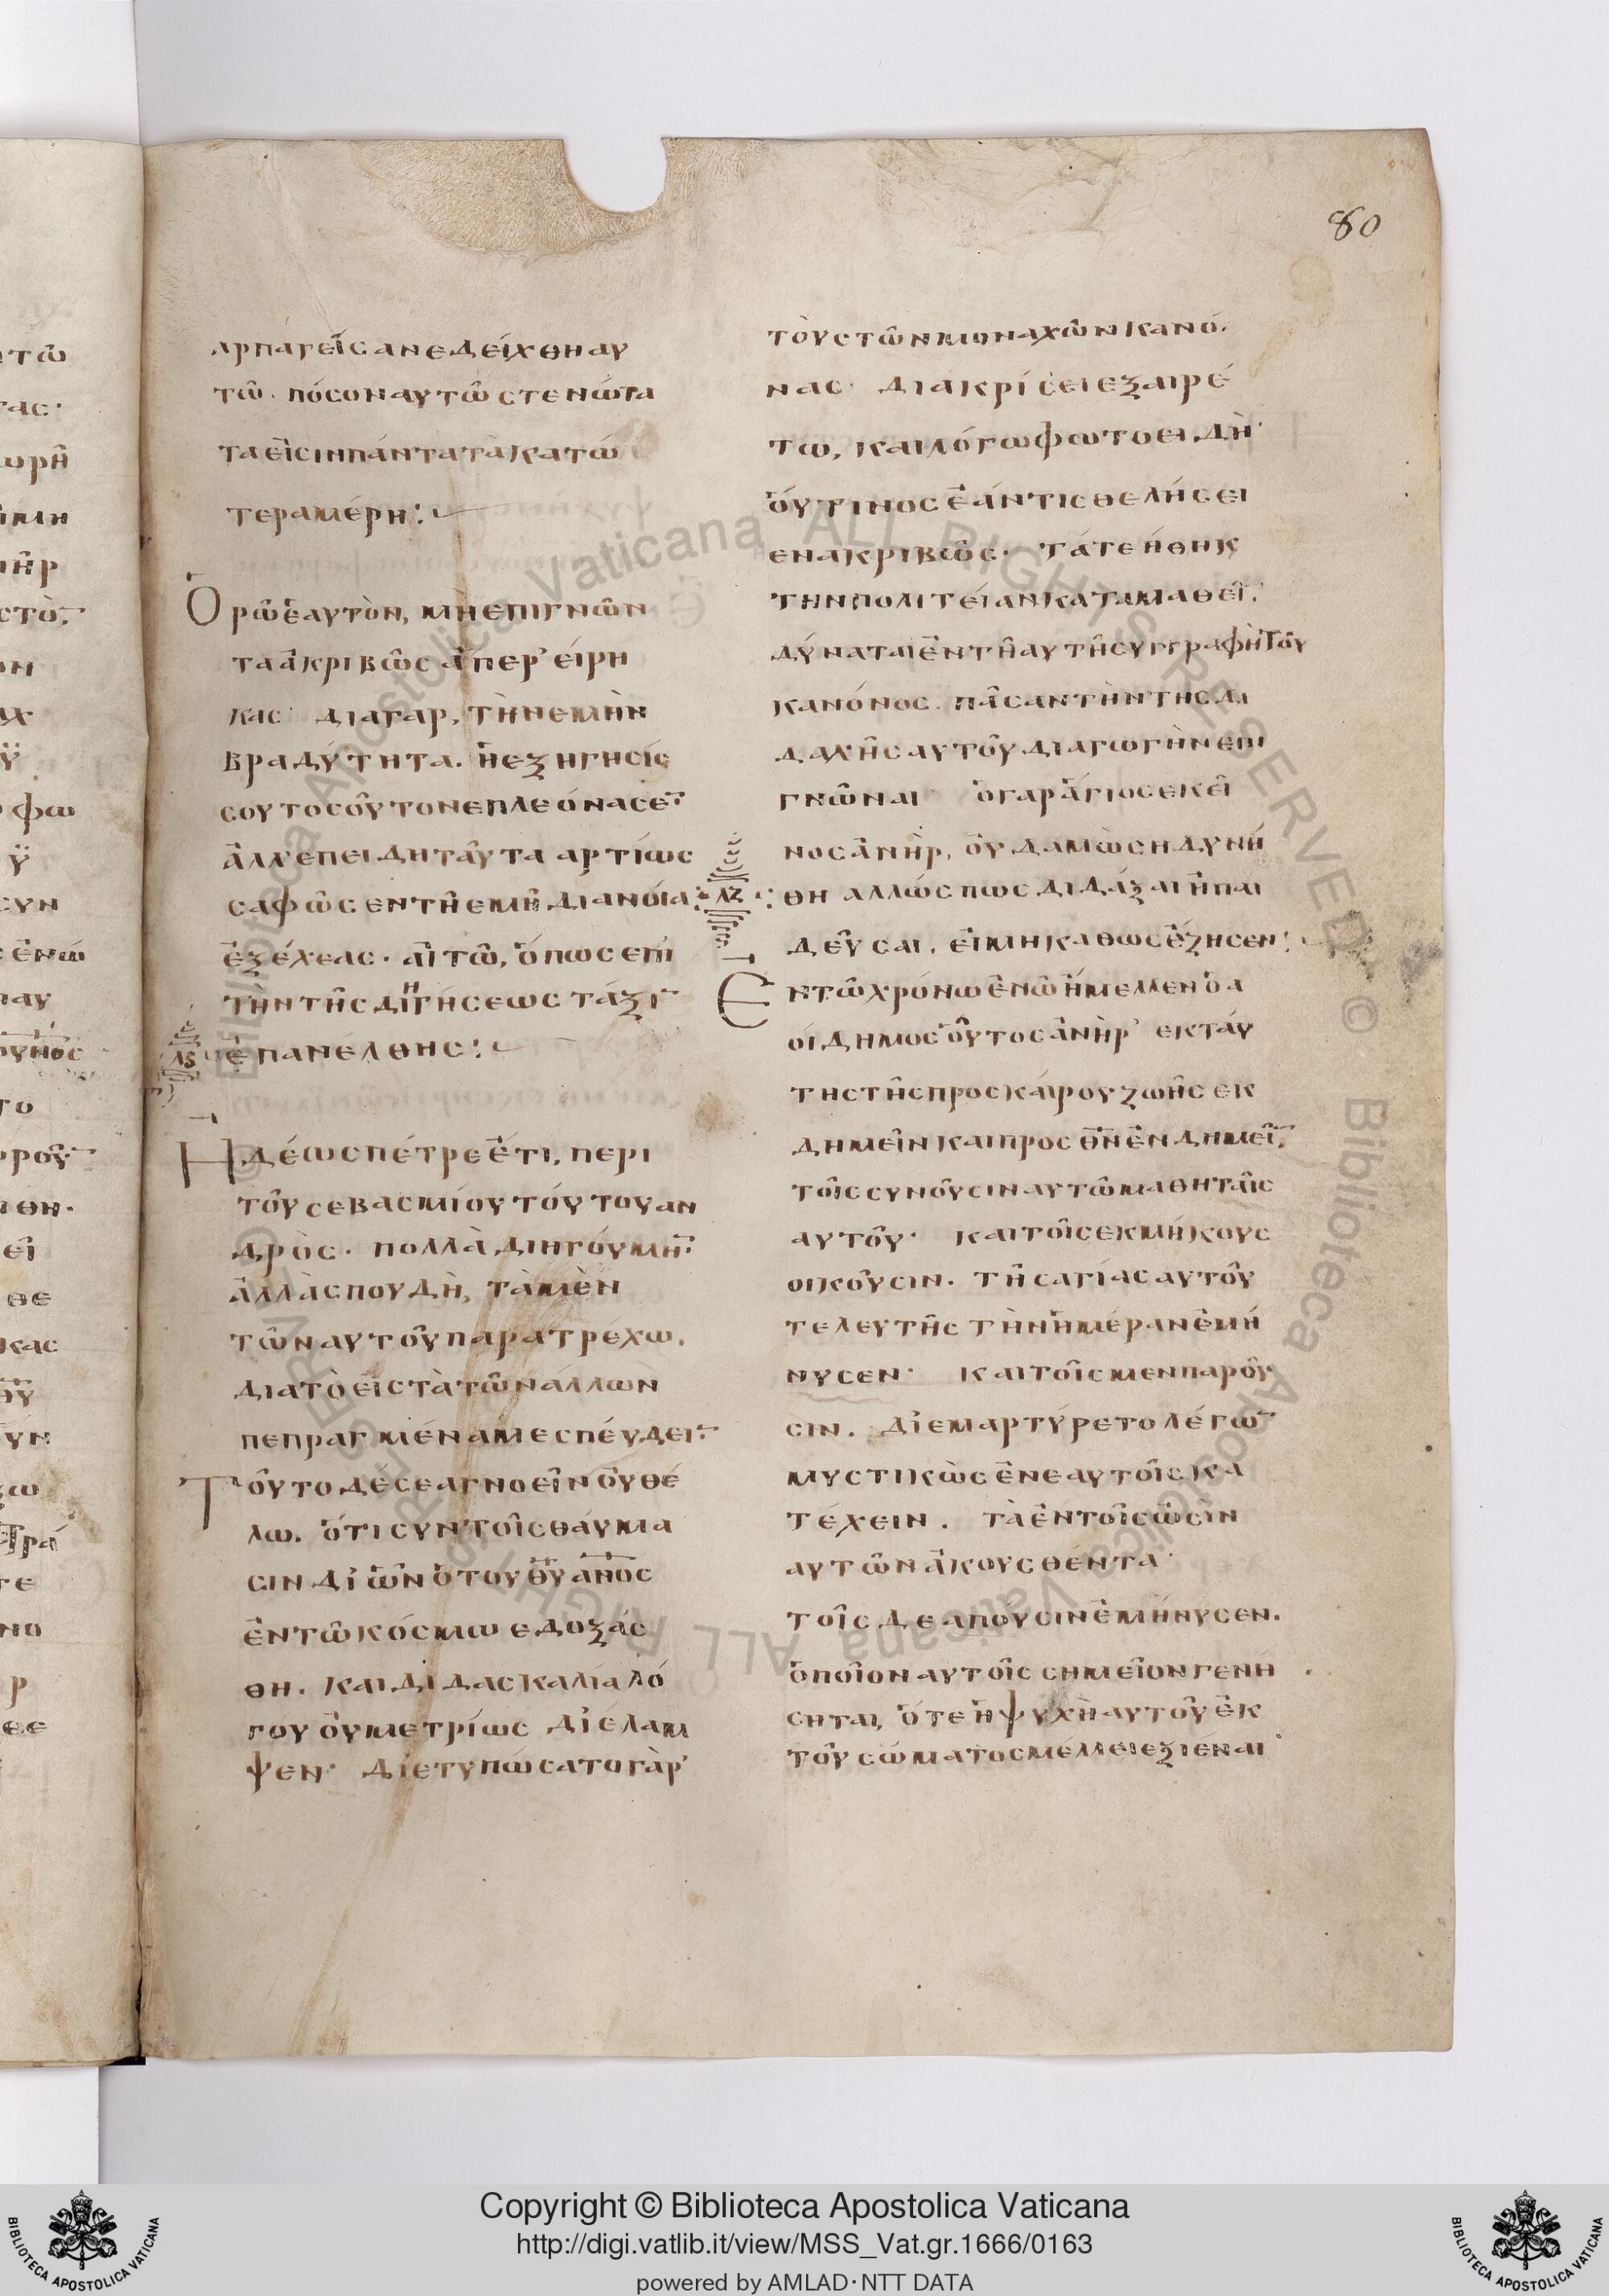 80
ἁρπαγεῖσ ἀνεδείχθη αυ
τῶ. πόσον αυτῶ στενώτα
τα εἰσιν πάντα τὰ κατώ
τερα μέρη:
Ὁρῶ ἑαυτὸν, μὴ επιγνῶν
τα ἀκριβῶς ἅπερ είρη
κας· δια γαρ, τὴν εμὴν
βραδύτητα. ἡ εξήγησίς
σου τοσοῦτον επλεόνασε̅
ἀλλ' επειδη ταῦτα αρτίως
σαφῶς εν τῆ εμῆ διανοία
ἐξέχεας· αἰτῶ, ὅπως επι
τὴν τῆς διηγήσεως τάξι̅
ἐπανέλθης:
λς
Ηδέως πέτρε ἔτι, περι
τοῦ σεβασμίου τούτου αν
δρὸς· πολλὰ διηγούμη̅·
ἀλλὰ σπουδὴ, τὰ μὲν
τῶν αυτοῦ παρατρέχω.
δια τὸ εἰς τὰ τῶν άλλων
πεπραγμένα με σπεύδει̅·
Τοῦτο δέ σε αγνοεῖν οὐ θέ
λω. ὅτι συν τοῖς θαύμα
σιν δι' ὧν ὁ του θ̅υ̅ α̅ν̅ο̅ς
ἐν τῶ κόσμω εδοξάσ
θη. και διδασκαλία λό
γου οὐ μετρίως διέλαμ
ψεν· διετυπώσατο γὰρ
τοὺς τῶν μοναχῶν κανό
νας· διακρίσει εξαιρέ
τω, και λόγω φωτοειδῆ·
οὗτινος ἐάν τις θελήσει
εν ακριβῶς· τά τε ήθη κ
την πολιτείαν καταμαθεῖ̅·
δύναται ἐν τῆ αυτῆ συγγραφὴ τοῦ
κανόνος. πᾶσαν τὴν τῆς δι
δαχῆς αυτοῦ διαγωγὴν επι
γνῶναι· ὁ γαρ ἅγιος εκεῖ
νος ἀνὴρ, οὐδαμῶς ηδυνή
θη αλλώς πως διδάξαι ἢ παι
δεῦσαι. εἰ μη καθως ἔζησεν:
λζ
Εν τῶ χρόνω ἐν ῶ ἤμελλεν ὁ α
οίδημος οὗτος ἀνὴρ εκ ταύ
της τῆς προσκαίρου ζωῆς εκ
δημεῖν και προς θ̅ν̅ ἐνδημεῖ̅·
τοῖς συνοῦσιν αυτῶ μαθηταῖς
αυτοῦ· και τοῖς εκ μήκους
οικοῦσιν. τῆς αγίας αυτοῦ
τελευτῆς τὴν ἡμέραν ἐμή
νυσεν· και τοῖς μεν παροῦ
σιν. διεμαρτύρετο λέγω̅
μυστικῶς ἐν εαυτοῖς κα
τέχειν. τὰ ἐν τοῖς ὠσὶν
αυτῶν ἀκουσθέντα·
τοῖς δε απούσιν ἐμήνυσεν.
ὁποῖον αυτοῖς σημεῖον γενη
σηται, ὅτε ἡ ψυχὴ αυτοῦ ἐκ
τοῦ σώματος μέλλει εξιέναι·
Copyright © Biblioteca Apostolica Vaticana
http://digi.vatlib.it/view/MSS_Vat.gr.1666/0163
powered by AMLAD·NTT DATA